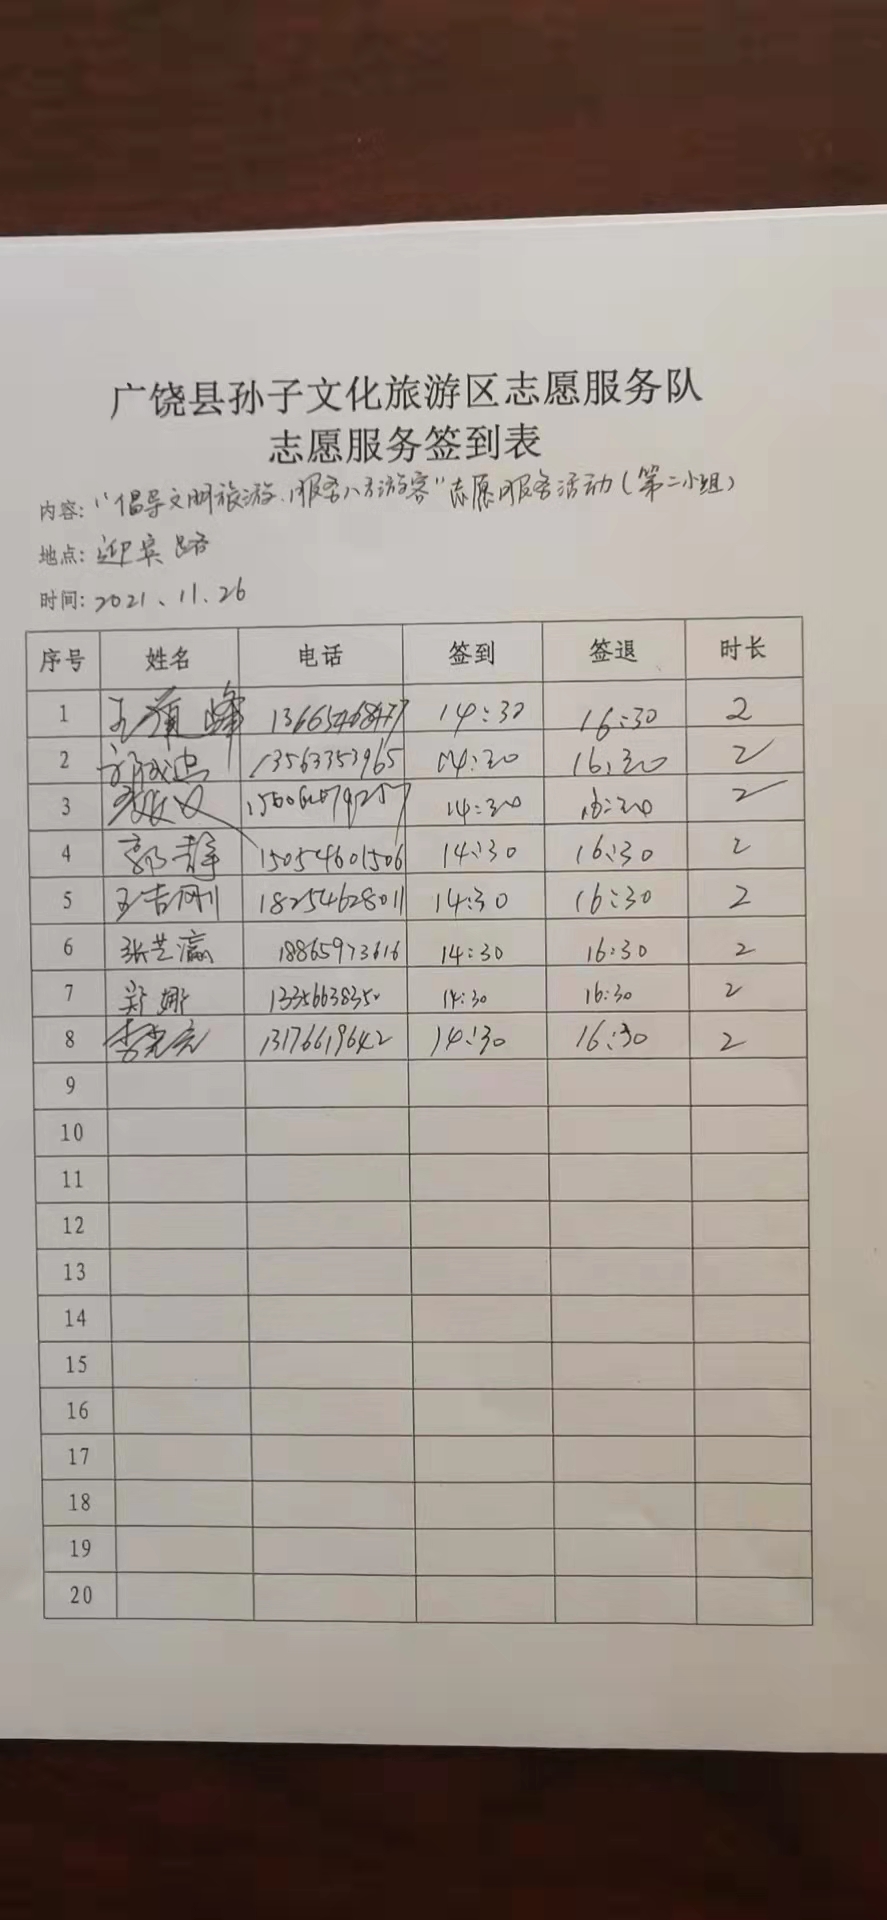 广饶县孙子文化旅游区志愿服务队
志愿服务签到表
内容:"倡导文明旅游、服务八方游客"志愿服务活动(第二小组)
地点:迎宾路
时间:2021.11.26
序号 姓名 电话 签到 签退 时长
1 峰 14:30 16:30 2
2 13563353965 14:30 16:30 2
3 14:30 16:30 2
4 郭静 15054601506 14:30 16:30 2
5 王吉刚 18254628011 14:30 16:30 2
6 张芝瀛 18865973616 14:30 16:30 2
7 郑娜 13356638350 14:30 16:30 2
8 李 13176619642 14:30 16:30 2
9
10
11
12
13
14
15
16
17
18
19
20